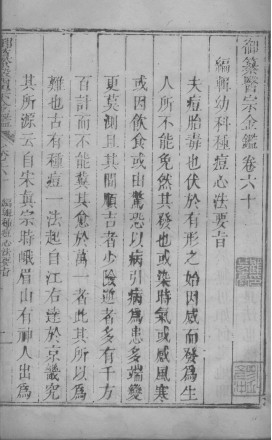 御纂醫宗金鑑卷六十
編輯幼科種痘心法要旨
夫痘胎毒也伏於有形之始因感而發為生
人所不能免然其發也或染時氣或感風寒
或因飲食或由驚恐以病引病為患多端變
更莫測且其間順吉者少險逆者多有千方
百計而不能冀其愈於萬一者此其所以為
難也古有種痘一法起自江右達於京畿究
其所源云自宋真宗時峨眉山有神人出為
編輯種痘心法要旨